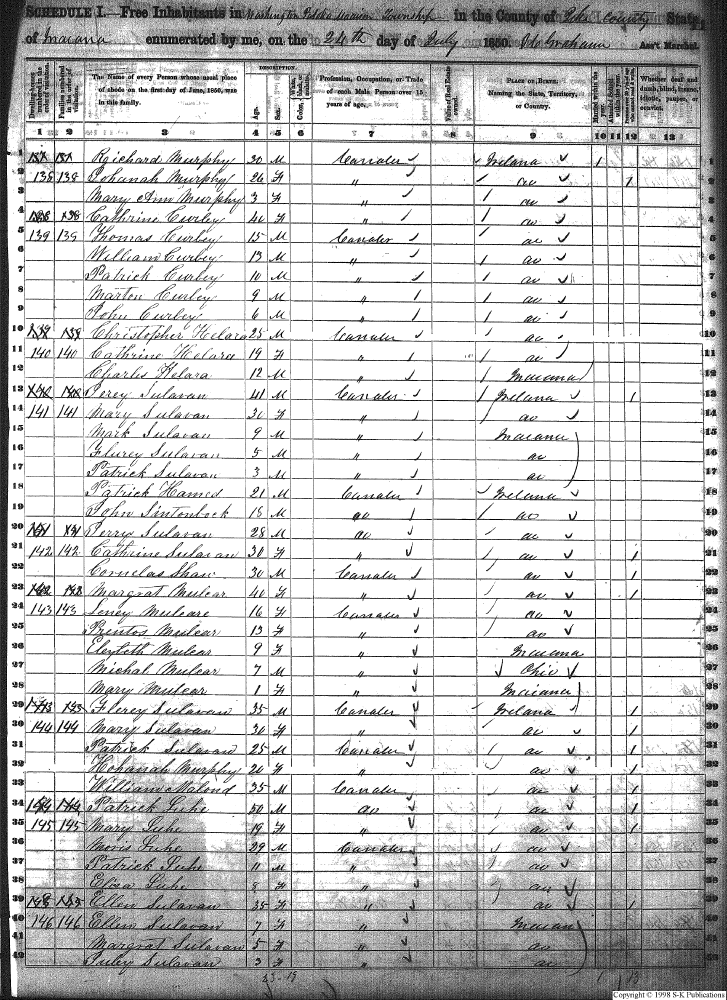 SCHEDULE I. Free Inhabitants in Washington Patoka Marion Township in the County of Pike County State
of Indiana enumerated by me, on the 24th day of July 1850. Ass't Marshal.
DESCRIPTION.
Dwelling-houses numbered in the order of visitation.
Families numbered in the order of visitation.
The Name of every Person whose usual place of abode on the first day of June, 1850, was in this family.
Age.
Sex.
Profession, Occupation, or Trade of each Male Person over 15 years of age.
Value of Real Estate owned.
PLACE OF BIRTH. Naming the State, Territory, or Country.
Whether deaf and dumb, blind, insane, idiotic, pauper, or convict.
1 2 3 4 5 6 7 8 9 10 11 12 13
1 137 137 Richard Murphy 30 M Canaler Ireland 1
2 138 138 Johanah Murphy 26 F " do 1
3 Mary Ann Murphy 3 F " do
4 138 138 Cathrine Curley 40 F " do
5 139 139 Thomas Curley 15 M Canaler do
6 William Curley 13 M " do
7 Patrick Curley 10 M " do
8 Marton Curley 9 M " do
9 John Curley 6 M " do
10 139 139 Christopher Kelara 25 M Canaler do
11 140 140 Cathrine Kelara 19 F " do
12 Charles Kelara 12 M " Indiana
13 140 140 Perey Sulavan 41 M Canaler Ireland 1
14 141 141 Mary Sulavan 30 F " do
15 Mark Sulavan 9 M " Indiana
16 Flurey Sulavan 5 M " do
17 Patrick Sulavan 3 M " do
18 Patrick Hames 21 M Canaler Ireland
19 John Santonbock 18 M do do
20 141 141 Perry Sulavan 28 M do do
21 142 142 Cathrine Sulavan 30 F " do 1
22 Cornelas Shaw 30 M Canaler do 1
23 142 142 Margrat Mulcar 40 F " do 1
24 143 143 Mulcare 16 F Canaler do
25 Mulcar 13 F " do
26 Mulcar 9 F " Indiana
27 Michal Mulcar 7 M " Ohio
28 Mary Mulcar 1 F " Indiana
29 143 143 Flerey Sulavan 35 M Canaler Ireland 1
30 144 144 Mary Sulavan 30 F " do 1
31 Patrick Sulavan 25 M Canaler do 1
32 Hohanah Murphy 20 F " do 1
33 William 35 M Canaler do 1
34 144 144 Patrick Luhe 50 M do do 1
35 145 145 Mary Luhe 19 F " do 1
36 Moris Luhe 29 M Canaler do
37 Patrick Luhe 11 M " do
38 Eliza Luhe 8 F " do
39 145 145 Ellen Sulavan 35 F " do 1
40 146 146 Ellen Sulavan 7 F " Indian
41 Margrat Sulavan 5 F " do
42 Juley Sulavan 3 F " do
Copyright © 1998 S-K Publications